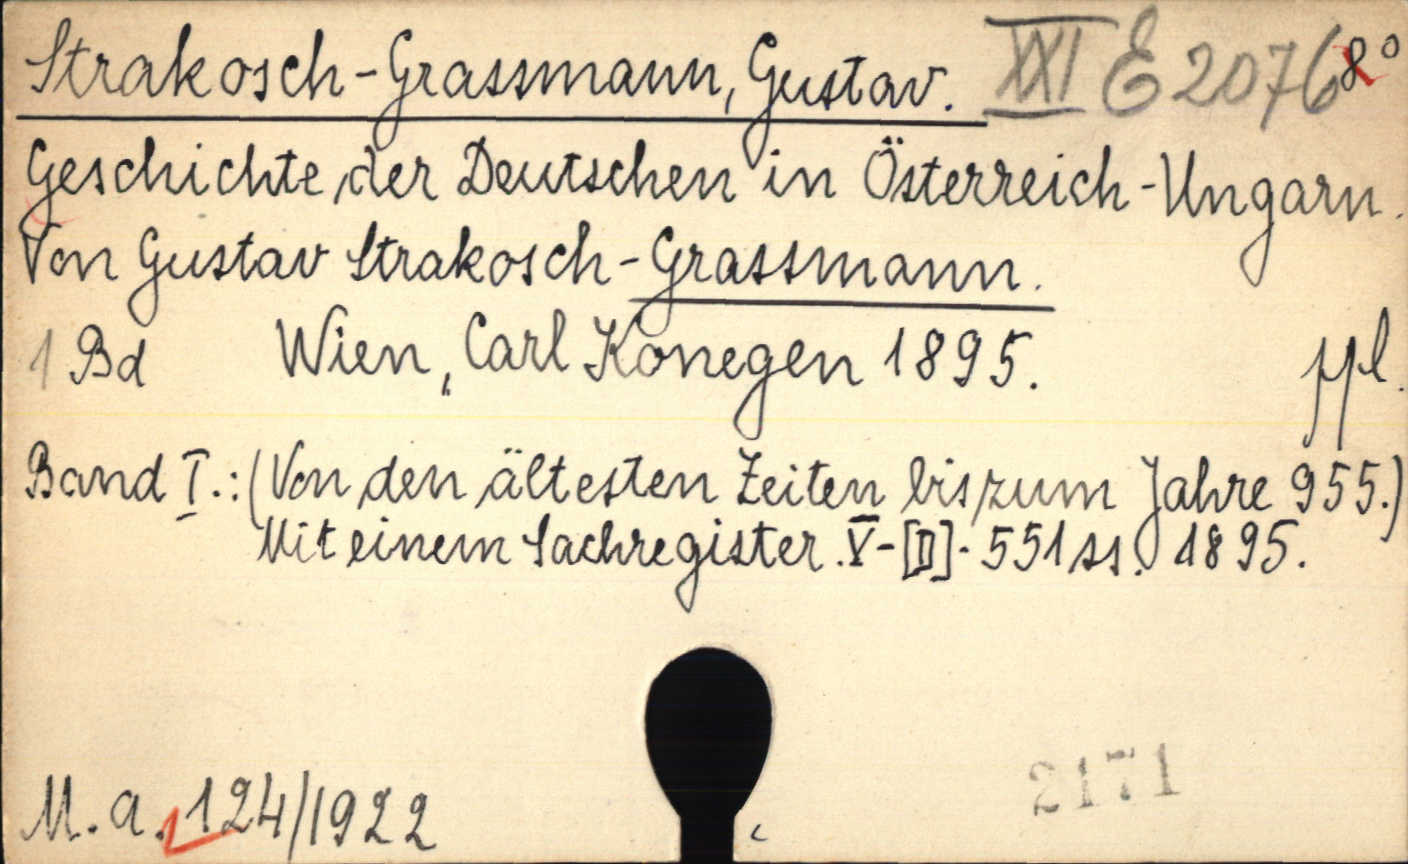 Strakosch-Grassmann, Gustav. XXI E 2076 8°
Geschichte der Deutschen in Österreich-Ungarn.
Von Gustav Strakosch-Grassmann.
1 Bd Wien, Carl Konegen 1895. ppl.
Band I.: (Von den ältesten Zeiten bis zum Jahre 955.)
Mit einem Sachregister. V-[II]. 551 ss. 1895.
M. a. 124/1922
2171